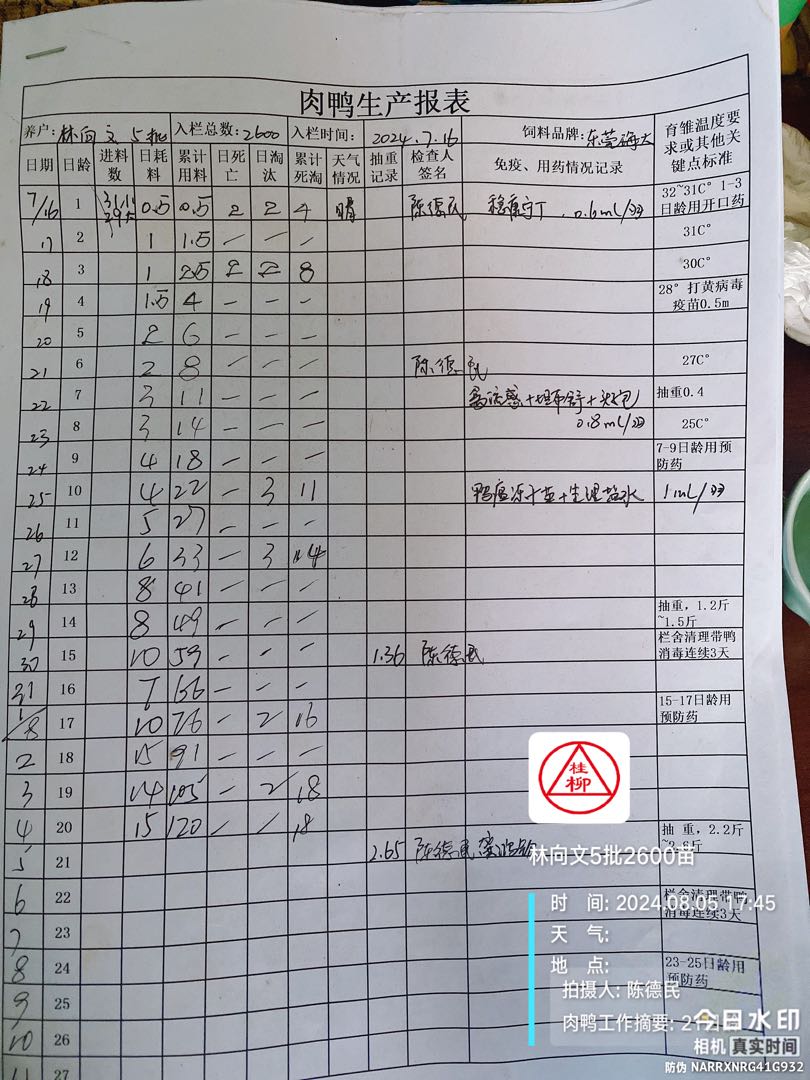 肉鸭生产报表
养户: 林向文 5批 入栏总数: 2600 入栏时间: 2024.7.16 饲料品牌: 东莞海大 育雏温度要求或其他关键点标准
日期 日龄 进料数 日耗料 累计用料 日死亡 日淘汰 累计死淘 天气情况 抽重记录 检查人签名 免疫、用药情况记录
7/16 1 0.5 0.5 2 2 4 晴 陈德民 0.6ml/羽 32~31C° 1-3日龄用开口药
17 2 1 1.5 — — — 31C°
18 3 1 2.5 2 2 8 30C°
19 4 1.5 4 — — — 28° 打黄病毒疫苗0.5m
20 5 2 6 — — —
21 6 2 8 — — — 陈德民 27C°
22 7 3 11 — — — 抽重0.4
23 8 3 14 — — — 0.8ml/羽 25C°
24 9 4 18 — — — 7-9日龄用预防药
25 10 4 22 — 3 11 生理盐水 1ml/羽
26 11 5 27 — — —
27 12 6 33 — 3 14
28 13 8 41 — — —
29 14 8 49 — — — 抽重，1.2斤~1.5斤
30 15 10 59 — — — 1.36 陈德民 栏舍清理带鸭消毒连续3天
31 16 7 66 — — —
1/8 17 10 76 — 2 16 15-17日龄用预防药
2 18 15 91 — — —
3 19 14 105 — 2 18
4 20 15 120 — — 18 抽 重，2.2斤
5 21 2.65 陈德民
6 22 栏舍清理带鸭消毒连续3天
7 23
8 24 23-25日龄用预防药
9 25
10 26
11 27
桂柳
林向文5批2600苗
时 间: 2024.08.05 17:45
天 气:
地 点:
拍摄人: 陈德民
肉鸭工作摘要: 21
今日水印
相机 真实时间
防伪 NARRXNRG41G932